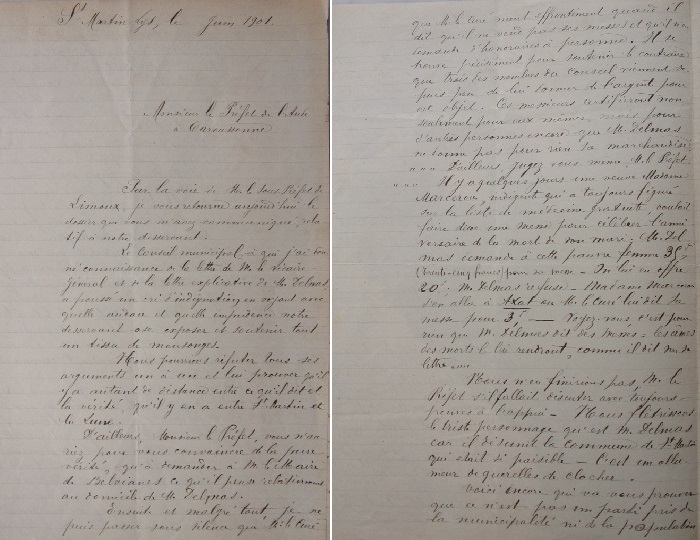 St Martin Lys, le Juin 1901.
Monsieur le Préfet de l'Aude
à Carcassonne
Par la voie de Mr le Sous-Préfet de
Limoux, je vous retourne aujourd'hui le
dossier que vous m'avez communiqué, rela
tif à notre desservant.
Le Conseil municipal, à qui j'ai don
né connaissance de la lettre de Mr le Vicaire
Général et de la lettre explicative de Mr Delmas,
a poussé un cri d'indignation en voyant avec
quelle audace et quelle impudence notre
desservant ose exposer et soutenir tout
un tissu de mensonges.
Nous pouvons réfuter tous ses
arguments un à un et lui prouver qu'il
y a autant de distance entre ce qu'il dit et
la vérité, qu'il y en a entre St Martin et
la Lune.
D'ailleurs, Monsieur le Préfet, vous n'au
riez pour vous convaincre de la pure
vérité, qu'à demander à Mr le Maire
de Belvianes ce qu'il pense relativement
au domicile de Mr Delmas.
Ensuite et malgré tout je ne
puis passer sous silence que Mr le Curé
que Mr le Curé ment effrontément quand il
dit qu'il ne vend pas ses messes et qu'il ne
demande d'honoraires à personne. Il se
trouve précisément pour soutenir le contraire
que trois des membres du conseil viennent de
puis peu de lui donner de l'argent pour
cet objet. Ces messieurs certifieront non
seulement pour eux mêmes mais pour
d'autres personnes encore que Mr Delmas
ne donne pas pour rien sa marchandise
D'ailleurs, jugez vous même, Mr le Préfet.
Il y a quelques jours une veuve Madame
Marcerou, indigente qui a toujours figuré
sur la liste de médecine gratuite voulait
faire dire une messe pour célébrer l'anni
versaire de la mort de son mari; Mr Del
mas demande à cette pauvre femme 35f
(Trente-cinq francs) pour se voir - On lui en offre
20f, Mr Delmas refuse - Madame Marcerou
s'en alla à Axat où Mr le Curé lui dit sa
messe pour 3f — Voyez-vous, c'est pour
rien que Mr Delmas dit des messes - les âmes
des morts le lui rendront, comme il dit sur sa
lettre
Nous n'en finirions pas, Mr le
Préfet s'il fallait discuter avec toujours
preuves à l'appui - Nous flétrissons
le triste personnage qui est Mr Delmas
car il désunit la commune de St Martin
qui était si paisible - C'est un allu
meur de querelles de clocher.
Voici encore qui va vous prouver
que ce n'est pas un parti pris de
la municipalité ni de la population